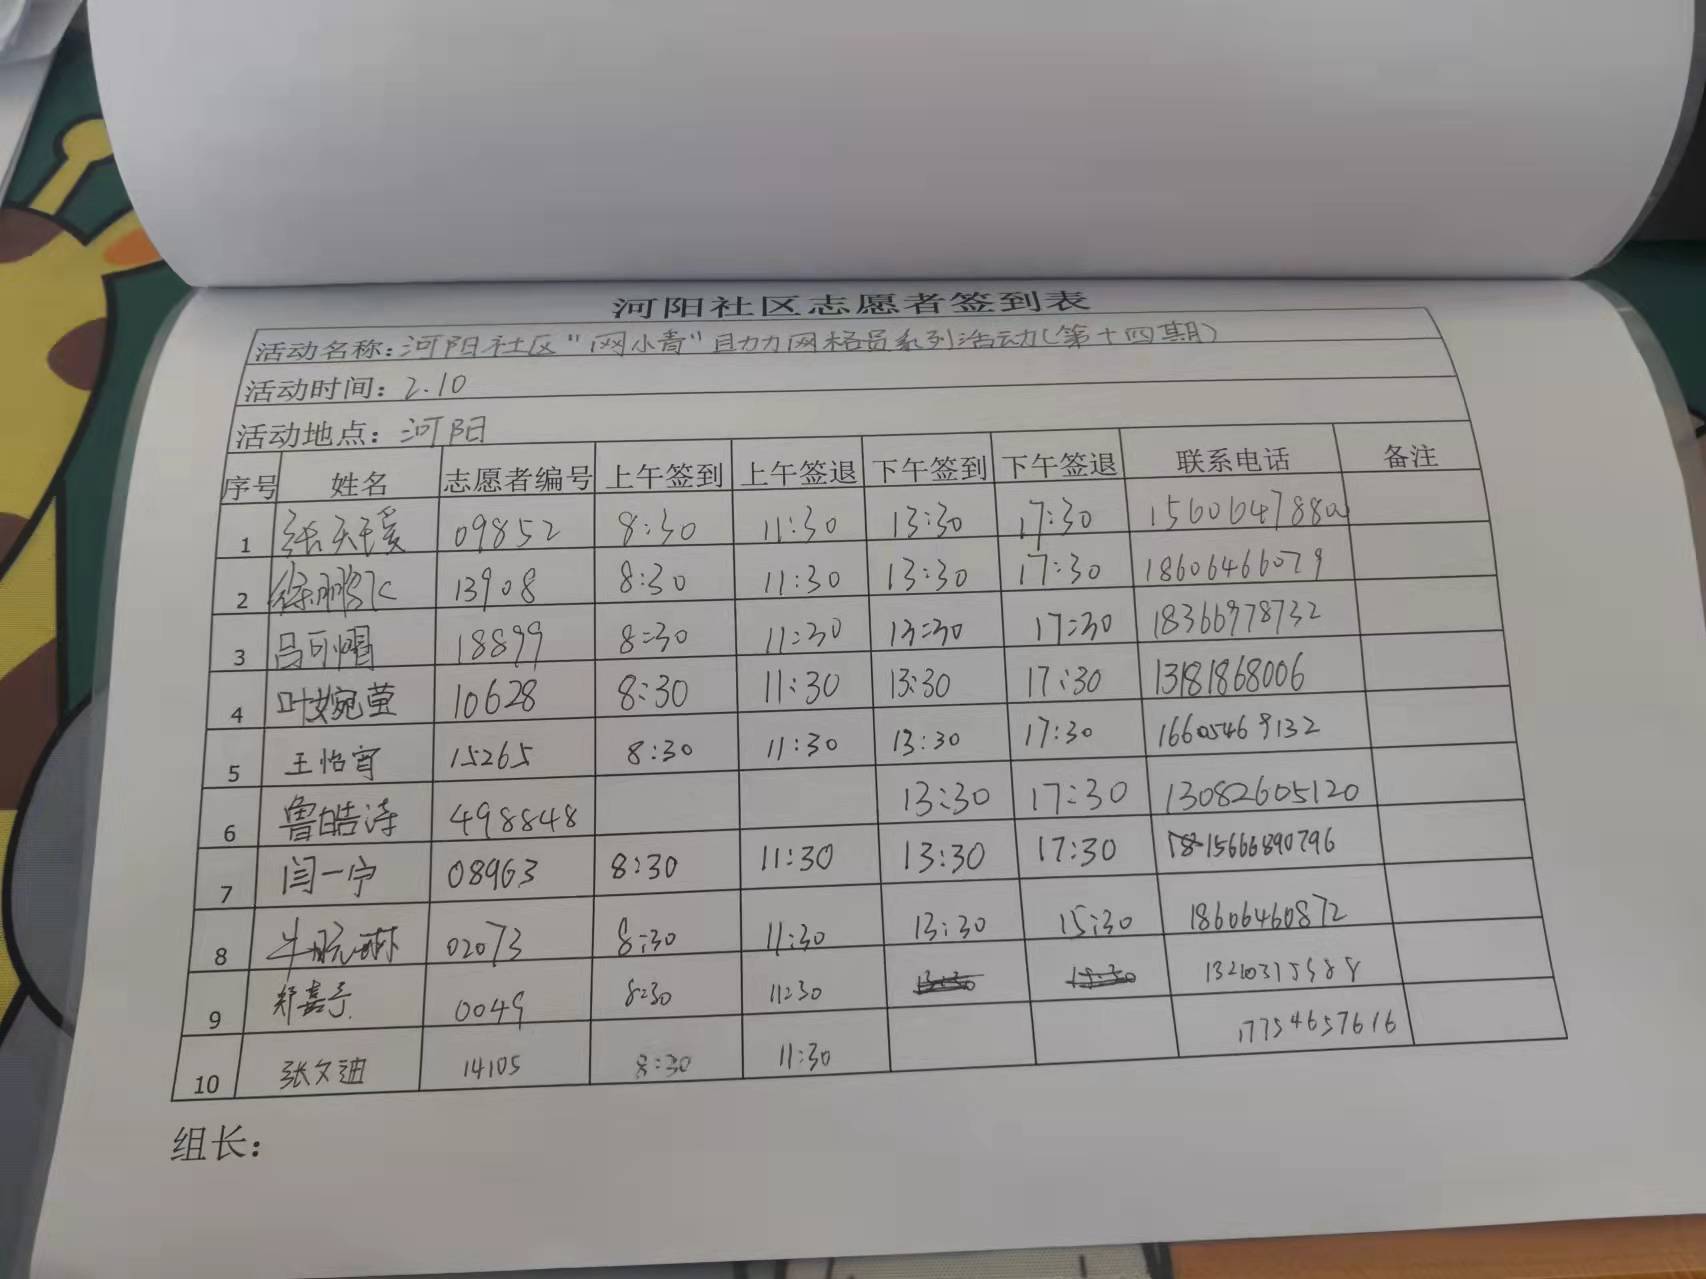 河阳社区志愿者签到表
活动名称:河阳社区"网小青"助力网格员系列活动(第十四期)
活动时间:2.10
活动地点:河阳
序号 姓名 志愿者编号 上午签到 上午签退 下午签到 下午签退 联系电话 备注
1 张天瑗 09852 8:30 11:30 13:30 17:30
2 徐鹏飞 13908 8:30 11:30 13:30 17:30 18606466079
3 吕可帽 18899 8:30 11:30 13:30 17:30 18366978732
4 叶婉莹 10628 8:30 11:30 13:30 17:30 13181868006
5 王怡宵 15265 8:30 11:30 13:30 17:30 16605469132
6 鲁皓涛 498848 13:30 17:30 13082605120
7 闫一宁 08963 8:30 11:30 13:30 17:30 15666890796
8 牛 琳 02073 8:30 11:30 13:30 15:30 18606460872
9 郑嘉 0049 8:30 11:30
10 张文迪 14105 8:30 11:30 17754657616
组长: